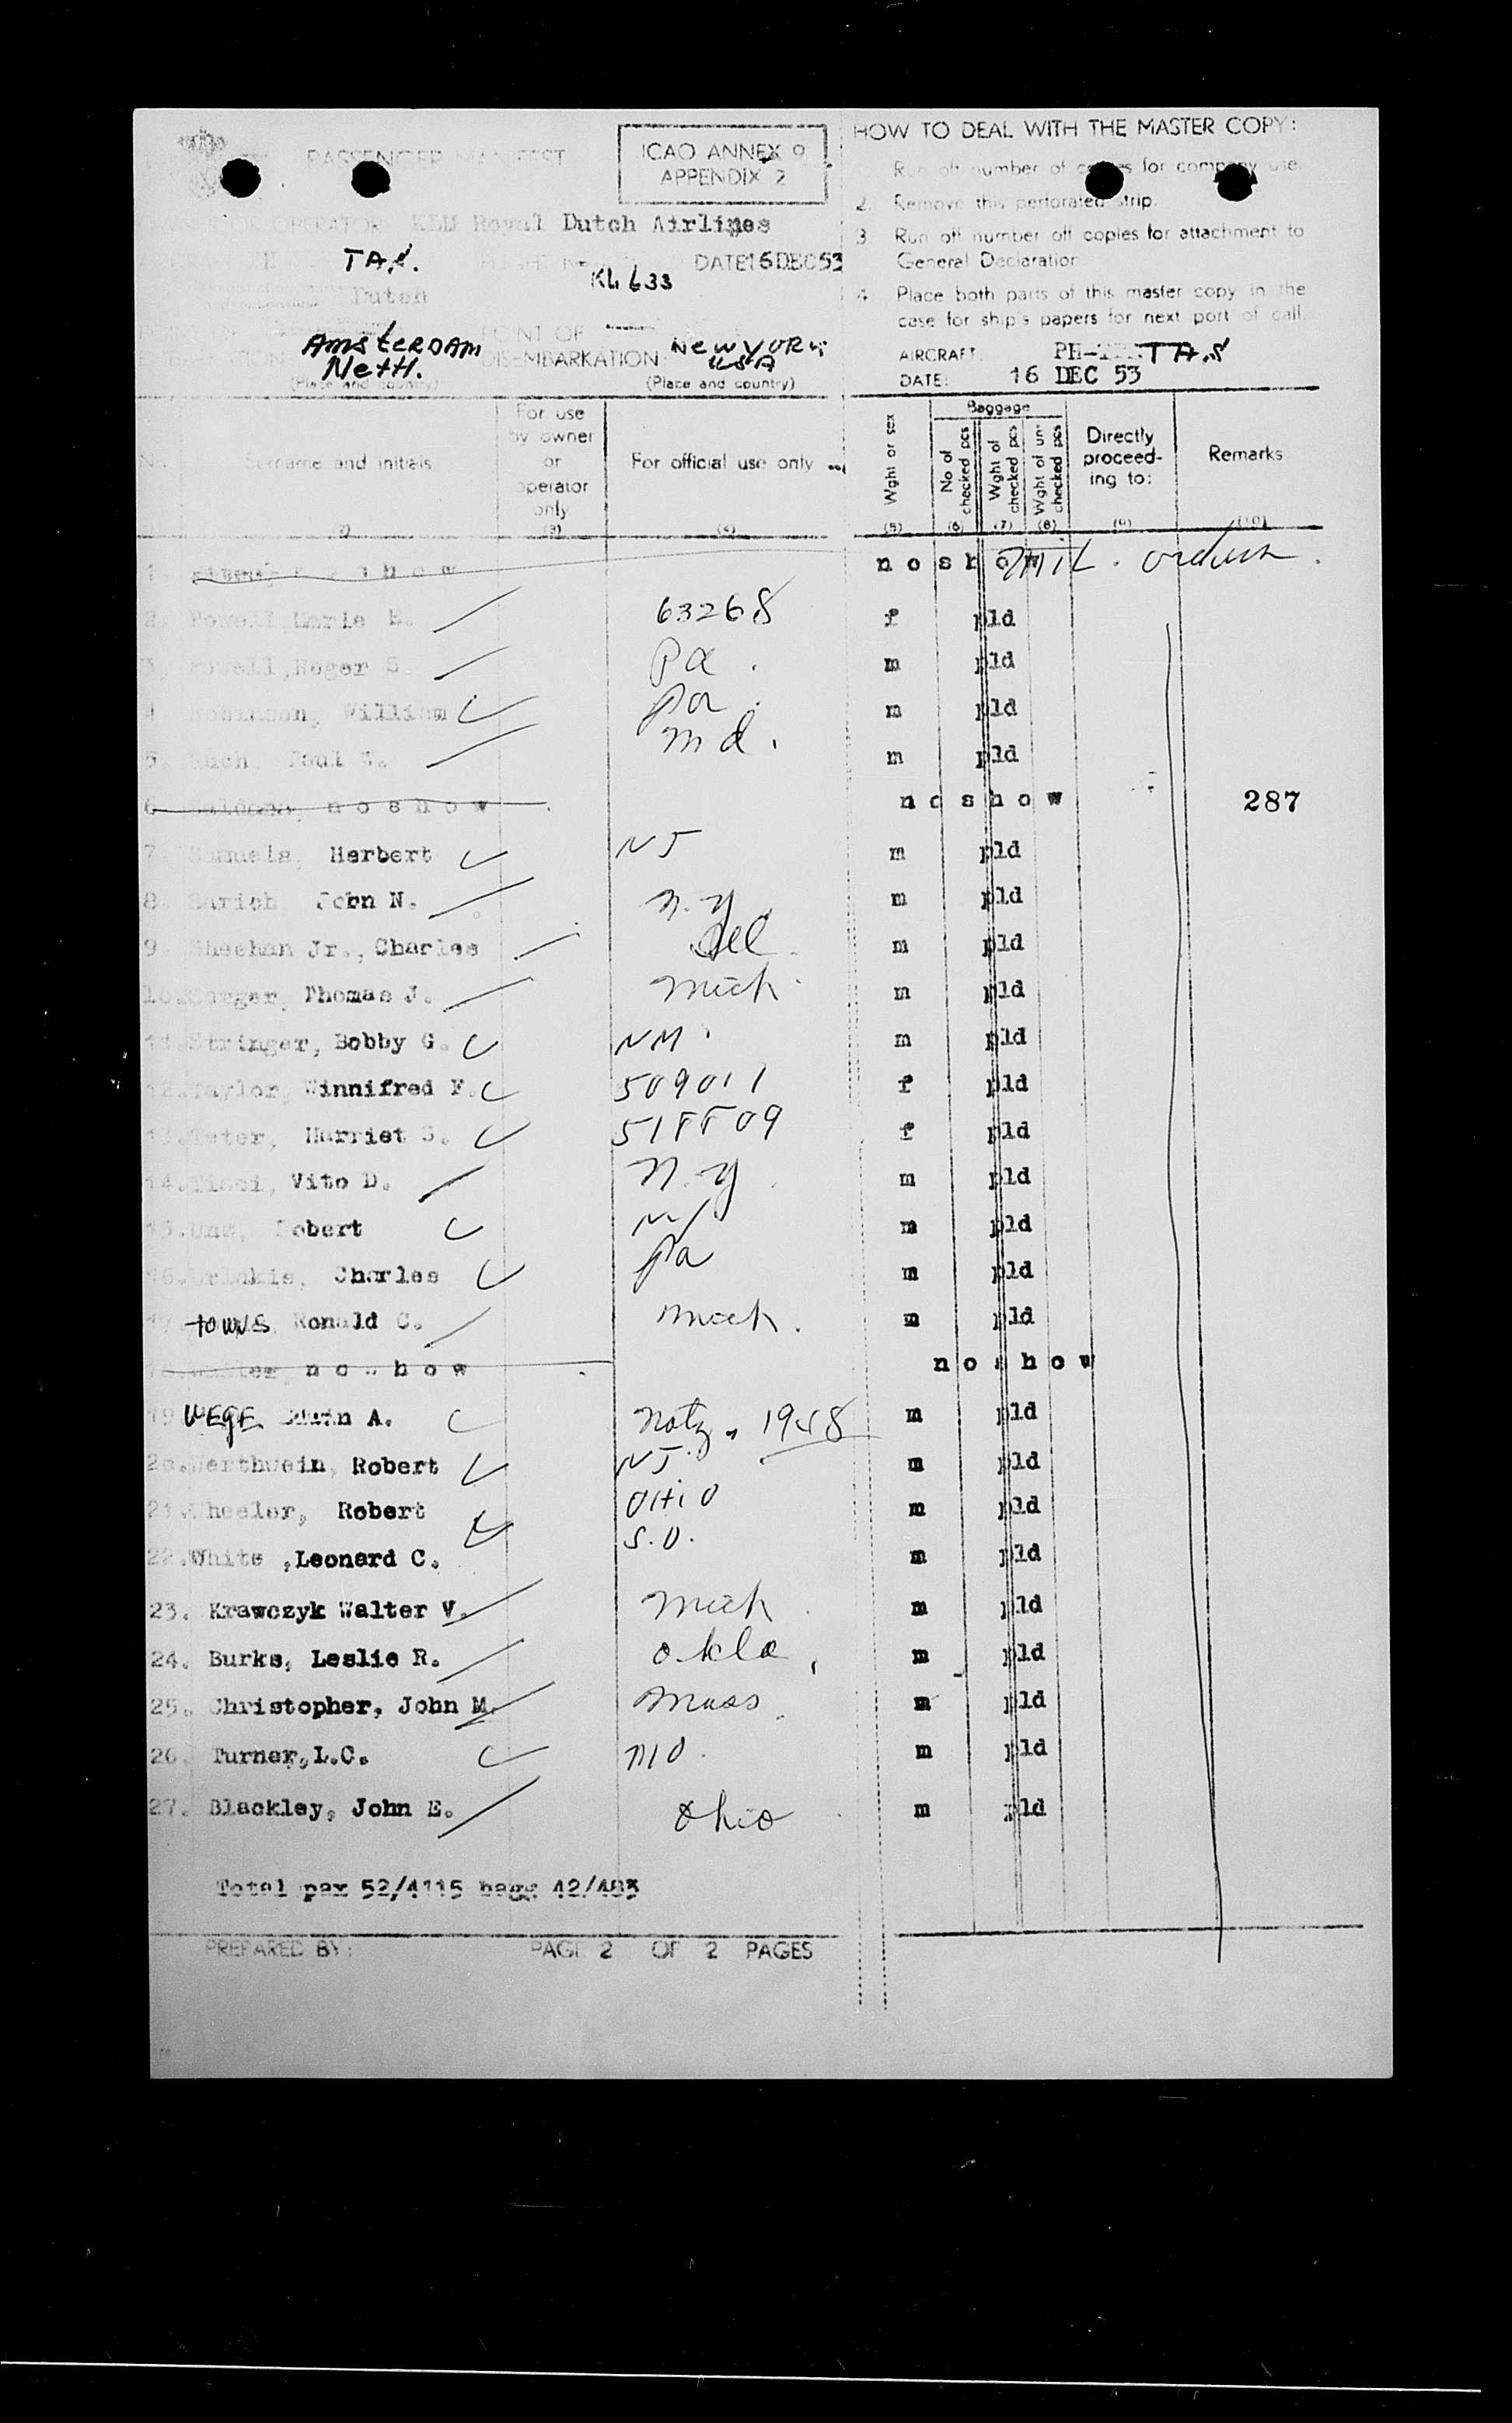 PASSENGER MANIFEST
ICAO ANNEX 9
APPENDIX 2
HOW TO DEAL WITH THE MASTER COPY:
Run off number of copies for company use.
2. Remove this perforated strip.
3. Run off number off copies for attachment to
General Declaration
4. Place both parts of this master copy in the
case for ship's papers for next port of call.
OPERATOR KLM Royal Dutch Airlines
TA.S. KL 633 DATE 16 DEC 53
Dutch
POINT OF
AmsterDAM DISEMBARKATION: New York
Neth. USA
(Place and country) (Place and country)
AIRCRAFT: PH- TA.S
DATE: 16 DEC 53
No. Surname and initials
For use by owner or operator only
For official use only
Wght or sex
Baggage
No of checked pcs
Wght of checked pcs
Wght of un- checked pcs
Directly proceed- ing to:
Remarks
(2) (3) (4) (5) (6) (7) (8) (9) (10)
1. n o s h o w n o s h o w Mil. orders.
2. Powell, Marie E. 63268 f pld
3. Powell, Roger S. Pa. m pld
4. Robinson, William Pa. m pld
5. Paul W. Md. m pld
6. n o s h o w n o s h o w 287
7. Samuels, Herbert NJ m pld
8. Sarich John N. N.Y m pld
9. Sheehan Jr., Charles Del. m pld
10. Thomas J. Mich. m pld
11. Stringer, Bobby G. NM. m pld
12. Taylor, Winnifred F. 509011 f pld
13. Teter, Harriet S. 518809 f pld
14. Tisci, Vito D. N.Y. m pld
15. Robert m pld
16. Charles Pa m pld
17. towns, Ronald C. Mich. m pld
18. n o s h o w n o s h o w
19. WEGE Edwin A. Natz. 1948 m pld
20. Werthwein, Robert NJ. m pld
21. Wheeler, Robert OHiO m pld
22. White ,Leonard C. S.D. m pld
23. Krawczyk Walter V. Mich. m pld
24. Burks, Leslie R. Okla. m pld
25. Christopher, John M. Mass. m pld
26. Turner, L.C. MO. m pld
27. Blackley, John E. Ohio m pld
Total pax 52/4115 bagg 42/483
PREPARED BY: PAGE 2 OF 2 PAGES